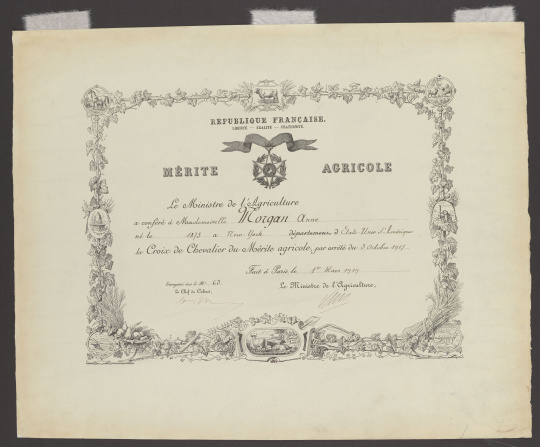 RÉPUBLIQUE FRANÇAISE.
LIBERTÉ — ÉGALITÉ — FRATERNITÉ.
MÉRITE AGRICOLE
Le Ministre de l'Agriculture
a conféré à Mademoiselle Morgan Anne
né le 1873 à New-York département d'Etats-Unis d'Amérique
la Croix de Chevalier du Mérite agricole, par arrêté du 3 Octobre 1917.
Fait à Paris, le 1er Mars 1919
Enregistré sous le No 63 Le Ministre de l'Agriculture,
Le Chef du Cabinet